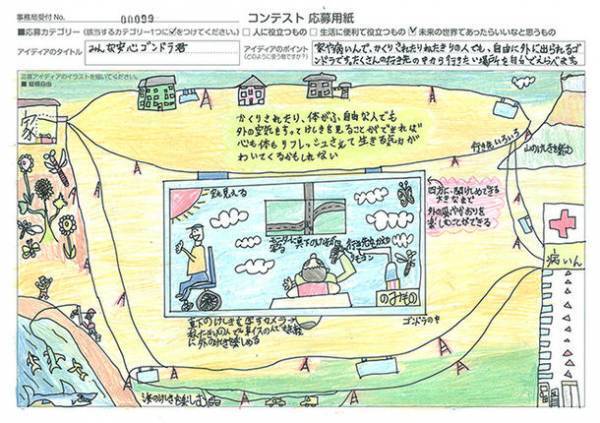 事務局受付No. 00099
コンテスト 応募用紙
■応募カテゴリー(該当するカテゴリー1つに✓をつけてください。) □人に役立つもの □生活に便利で役立つもの ☑未来の世界であったらいいなと思うもの
アイディアのタイトル
みんな安心ゴンドラ君
アイディアのポイント
(どのように使う物ですか？)
家や病いんで、かくりされたりねたきりの人でも、自由に外に出られるゴ
ンドラです。たくさんの行き先の中から行きたい場所を自分でえらべます。
応募アイディアのイラストを描いてください。
■縦横自由
家
かくりされたり、体がふ自由な人でも
外の空気をすってけしきを見ることができれば
心も体もリフレッシュされて生きる気力が
わいてくるかもしれない
行き先いろいろ
山のけしきを楽しむ
空も見える
四方に開けしめできる
大きなまど
外の風やかおりを
楽しむことができる
リモコン
のみもの
病いん
ゴンドラの中
真下のけしきを写すカメラ
ねたきりの人でも車イスの人でも
に外のけしきを楽しめる
海のけしきも楽しむ